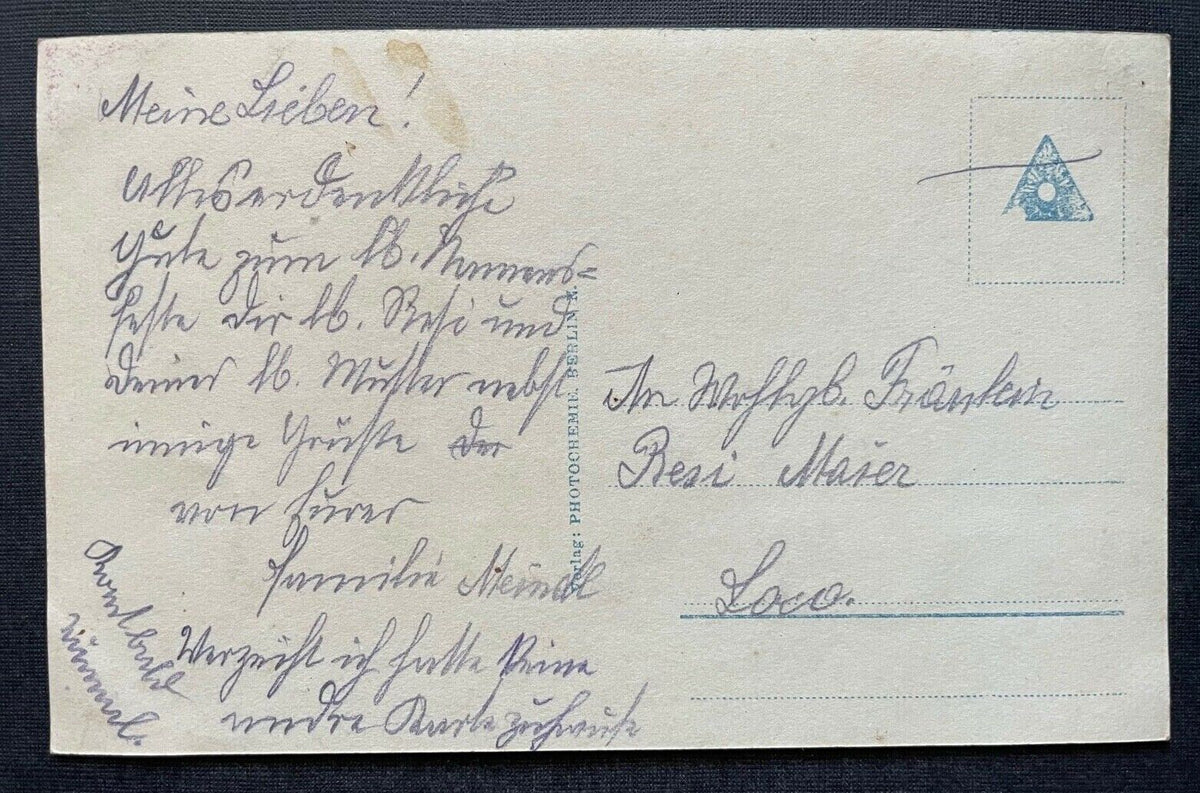 Meine Lieben!
Alles erdenkliche
Gute zum lb. Namens=
feste dir lb. Resi und
deiner lb. Mutter nebst
innige Grüße der
von Eurer
Familie Meindl
Verzeiht ich hatte keine
andre Karte zuhause
Kommt bald
einmal.
Verlag: PHOTOCHEMIE, BERLIN
An Wohlgb. Fräulein
Resi Maier
Loco.